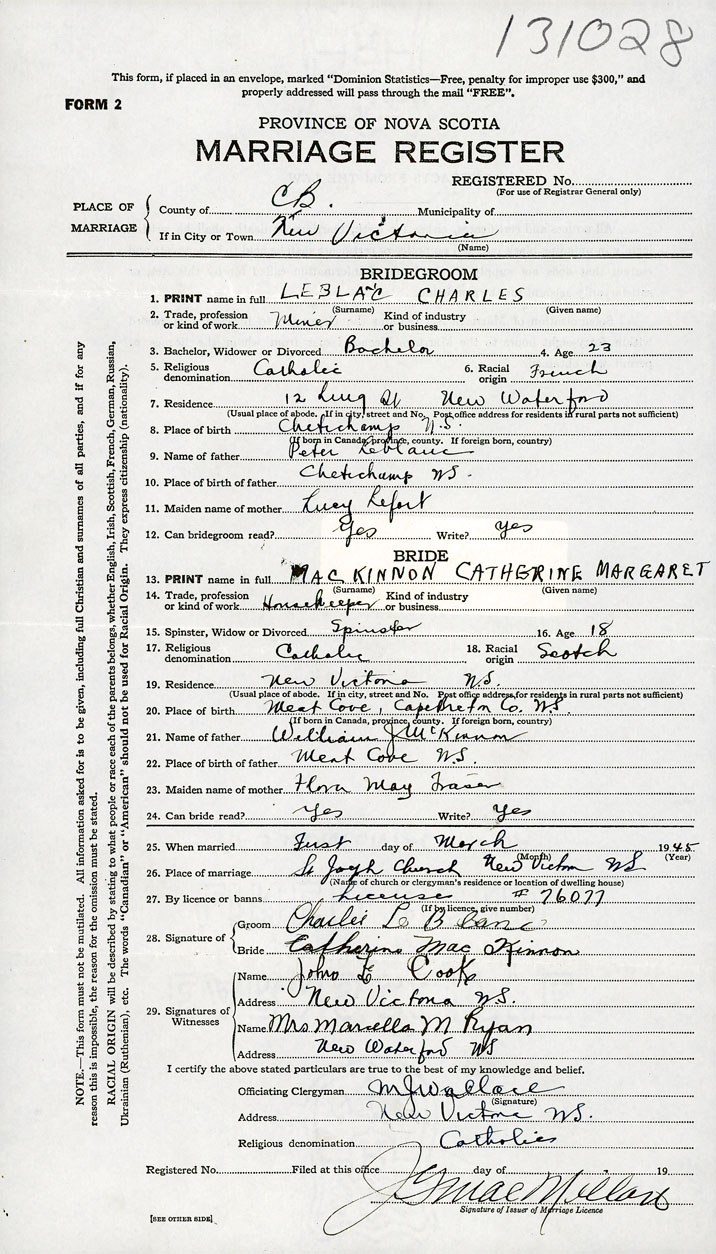 131028
This form, if placed in an envelope, marked "Dominion Statistics—Free, penalty for improper use $300," and
properly addressed will pass through the mail "FREE".
FORM 2
PROVINCE OF NOVA SCOTIA
MARRIAGE REGISTER
REGISTERED No.
(For use of Registrar General only)
PLACE OF MARRIAGE
County of C.B. Municipality of
If in City or Town New Victoria
(Name)
BRIDEGROOM
1. PRINT name in full LEBLAC CHARLES
(Surname) (Given name)
2. Trade, profession or kind of work Miner Kind of industry or business
3. Bachelor, Widower or Divorced Bachelor 4. Age 23
5. Religious denomination Catholic 6. Racial origin French
7. Residence 12 St New Waterford
(Usual place of abode. If in city, street and No. Post office address for residents in rural parts not sufficient)
8. Place of birth Chetichamp N.S.
(If born in Canada, province, county. If foreign born, country)
9. Name of father Peter Leblanc
10. Place of birth of father Chetichamp NS.
11. Maiden name of mother Lucy Lefort
12. Can bridegroom read? Yes Write? Yes
BRIDE
13. PRINT name in full MACKINNON CATHERINE MARGARET
(Surname) (Given name)
14. Trade, profession or kind of work Housekeeper Kind of industry or business
15. Spinster, Widow or Divorced Spinster 16. Age 18
17. Religious denomination Catholic 18. Racial origin Scotch
19. Residence New Victoria N.S.
(Usual place of abode. If in city, street and No. Post office address for residents in rural parts not sufficient)
20. Place of birth Meat Cove, Cape Breton Co. NS.
(If born in Canada, province, county. If foreign born, country)
21. Name of father William J McKinnon
22. Place of birth of father Meat Cove NS.
23. Maiden name of mother Flora May Fraser
24. Can bride read? Yes Write? Yes
25. When married First day of March 1945
(Month) (Year)
26. Place of marriage St Church New NS
(Name of church or clergyman's residence or location of dwelling house)
27. By licence or banns License # 76077
(If by licence, give number)
28. Signature of
Groom Charlie Le Blanc
Bride Catherine Mac Kinnon
29. Signatures of Witnesses
Name John E Cook
Address New Victoria NS.
Name Mrs Marcella M Ryan
Address New Waterford NS
I certify the above stated particulars are true to the best of my knowledge and belief.
Officiating Clergyman M J Wallace
(Signature)
Address New Victoria NS.
Religious denomination Catholic
Registered No. Filed at this office day of 19
Signature of Issuer of Marriage Licence
[SEE OTHER SIDE]
NOTE.—This form must not be mutilated. All information asked for is to be given, including full Christian and surnames of all parties, and if for any
reason this is impossible, the reason for the omission must be stated.
RACIAL ORIGIN will be described by stating to what people or race each of the parents belongs, whether English, Irish, Scottish, French, German, Russian,
Ukrainian (Ruthenian), etc. The words "Canadian" or "American" should not be used for Racial Origin. They express citizenship (nationality).